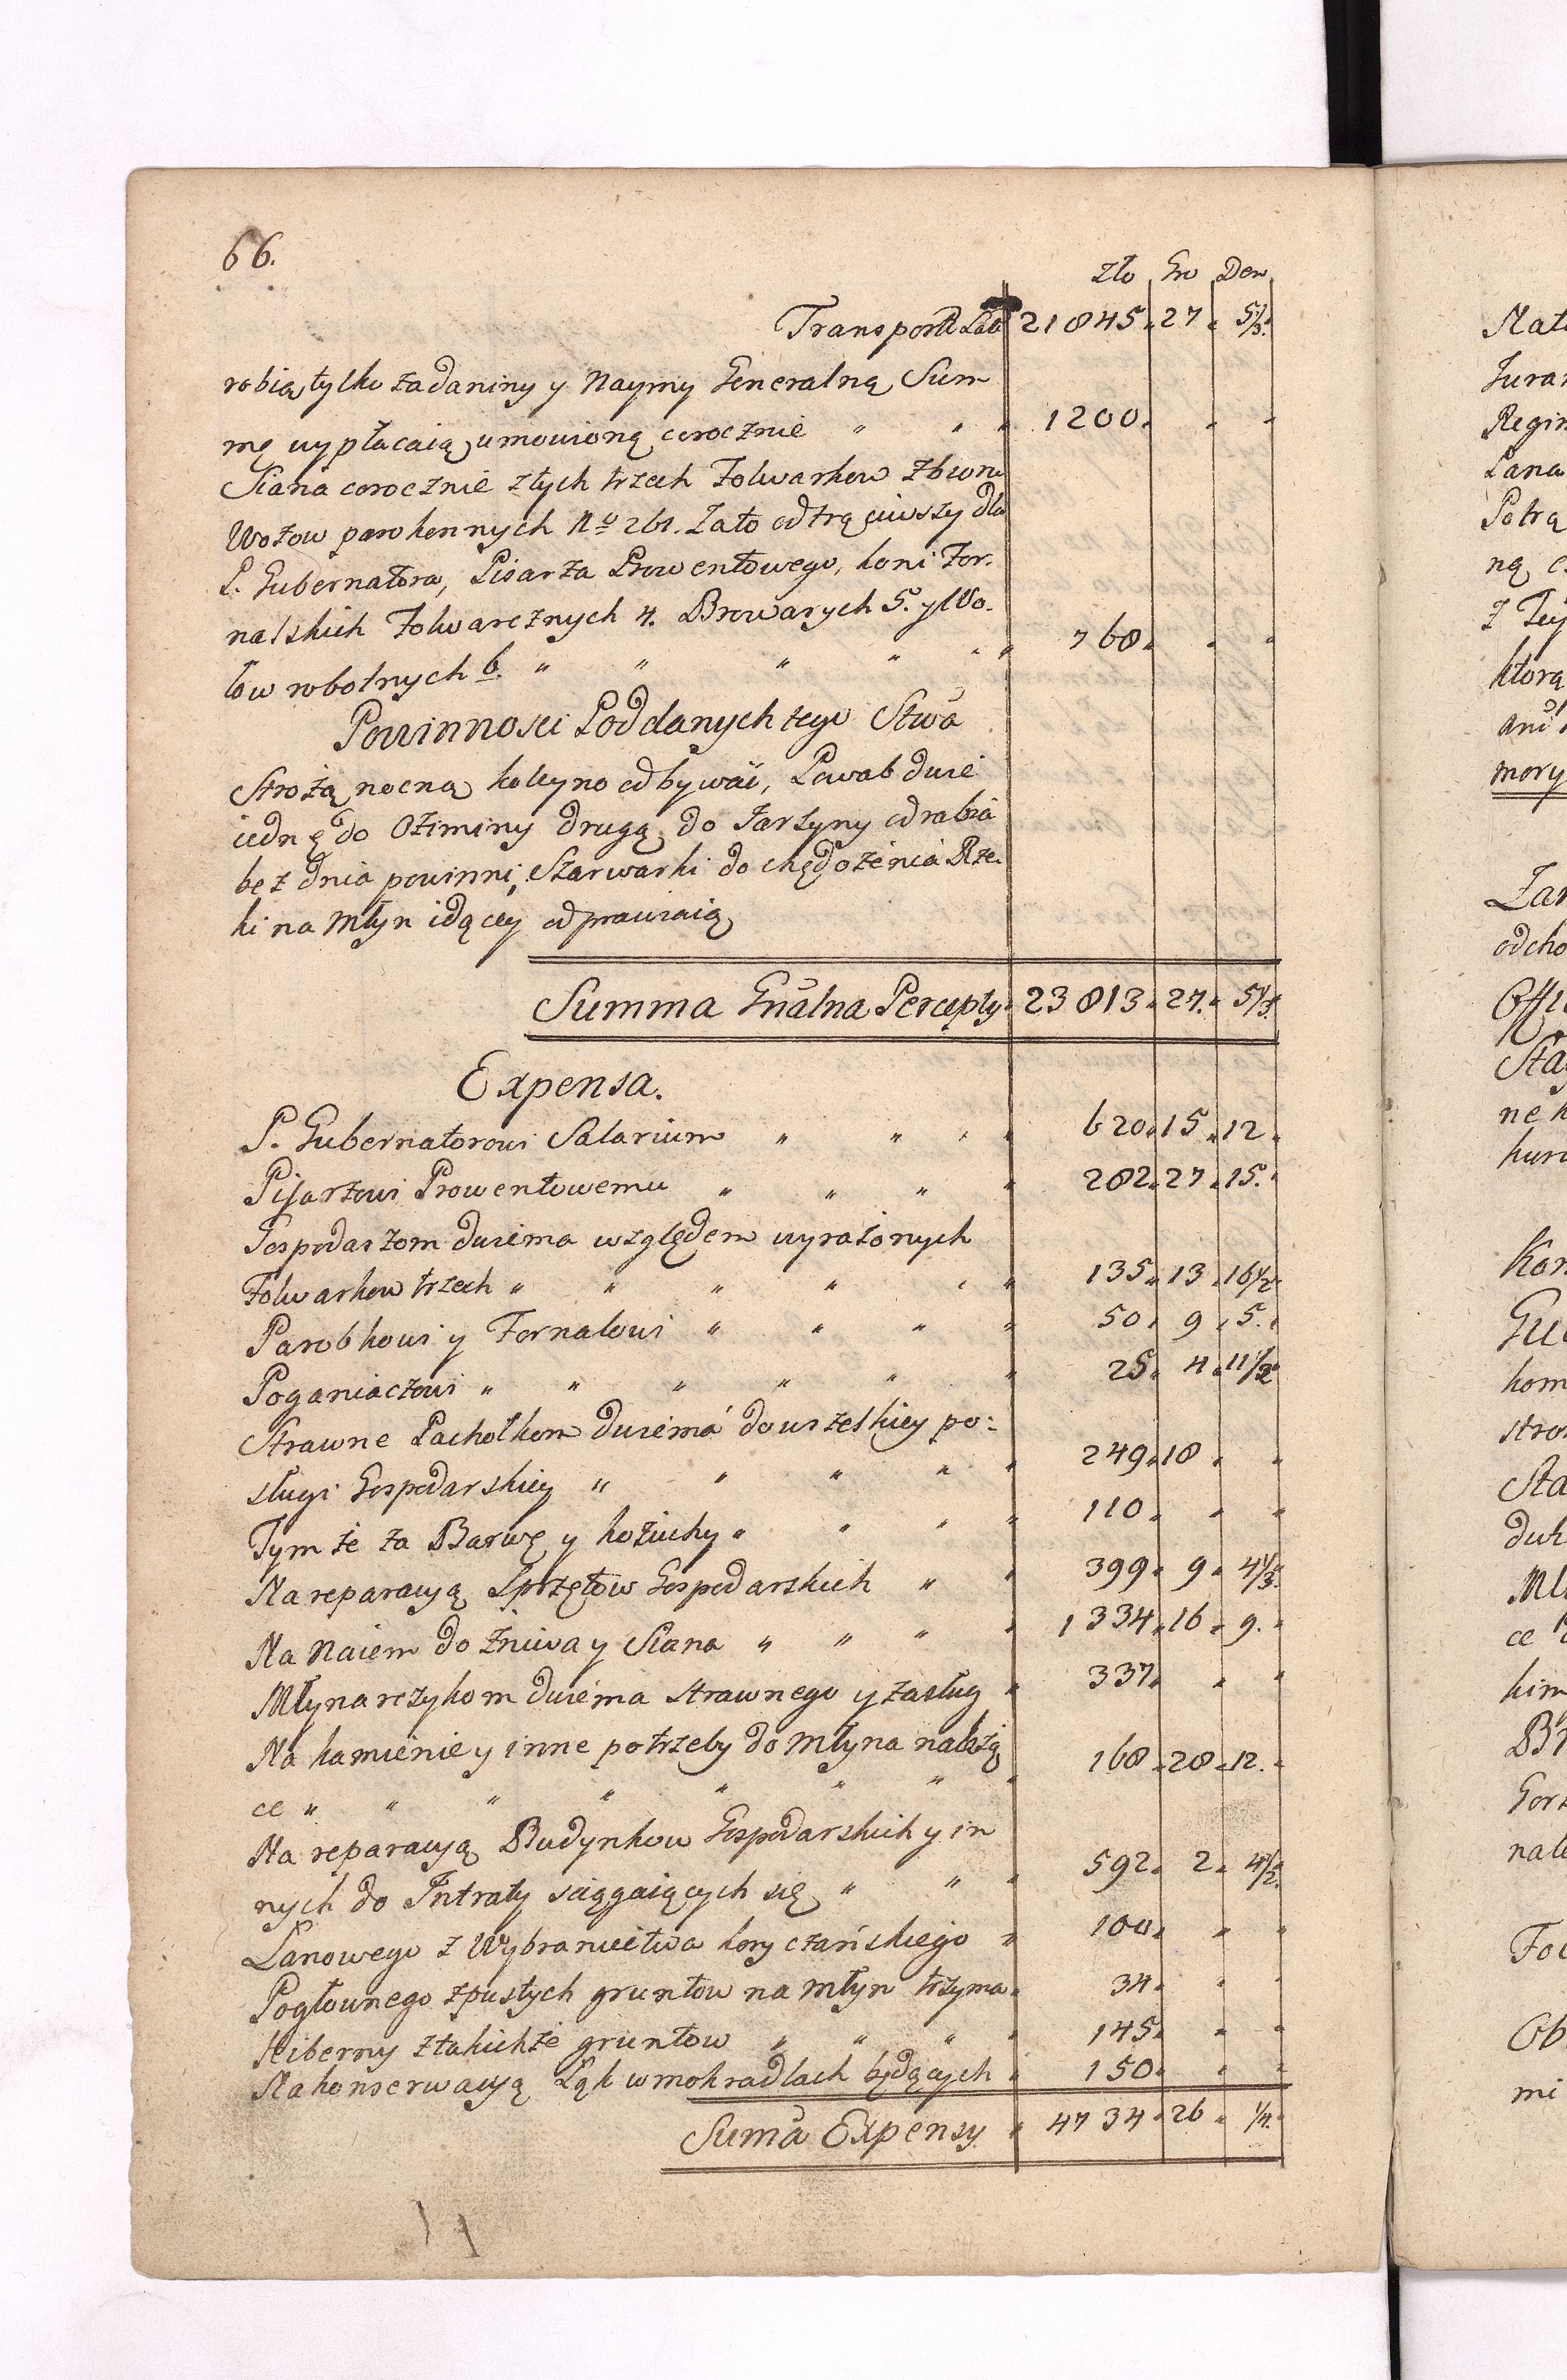 66.
Zło Gro Den
Transport Late 21845. 27. 5 1/3.
robią tylko za daniny y Naymy Generalną Sum
mę wypłacaią umowioną corocznie " " " 1200. " "
Siana corocznie z tych trzech Folwarkow zbioru
Wozow parokonnych No 261. Za to odtrąciwszy dla
P. Gubernatora, Pisarza Prowentowego, koni For.
nalskich Folwarcznych 4. Browarych 5. y Wo.
łow robotnych 6. " " " " " 768. " "
Powinnosci Poddanych tego Stwa
Strożą nocną koleyno odbywać, Powab dwie
iednę do Oziminy drugą do Jarzyny odrabia
bez dnia powinni, Szarwarki do chędożenia Rze.
ki na Młyn idącey odprawiaią
Summa Gnalna Percepty. 23813. 27. 5 1/3.
Expensa.
P. Gubernatorowi Salarium " " " " 620. 15. 12.
Pisarzowi Prowentowemu " " " " 282. 27. 15.
Gospodarzom dwiema względem wyrażonych
Folwarkow trzech " " " " " " 135. 13. 16 1/2.
Parobkowi y Fornalowi " " " " 50. 9. 5.
Poganiaczowi " " " " " " 25. 4. 11 1/2
Strawne Pachołkom dwiema do wszelkiey po:
sługi Gospodarskiey " " " " " 249. 18. "
Tym że za Barwę y kożuchy " " " " 110. " "
Na reparacyą Sprzętow Gospodarskich " " 399. 9. 4 1/3.
Na Naiem do żniwa y Siana " " " " 1334. 16. 9.
Młynarczykom dwiema strawnego y zasług " 337. " "
Na kamienie y inne potrzeby do Młyna należą
ce " " " " " " " " 168. 28. 12.
Na reparacyą Budynkow Gospodarskich y in
nych do Intraty sciągaiących się " " " 592. 2. 4 1/2.
Łanowego z Wybraniectwa koryczańskiego " 100. " "
Pogłownego z pustych gruntow na Młyn trzyma. 34. " "
Hiberny z takichże gruntow " " " " 145. " "
Na konserwacyą Łąk w mokradlach będących " 150. " "
Suma Expensy " 4734. 26. 1/4.